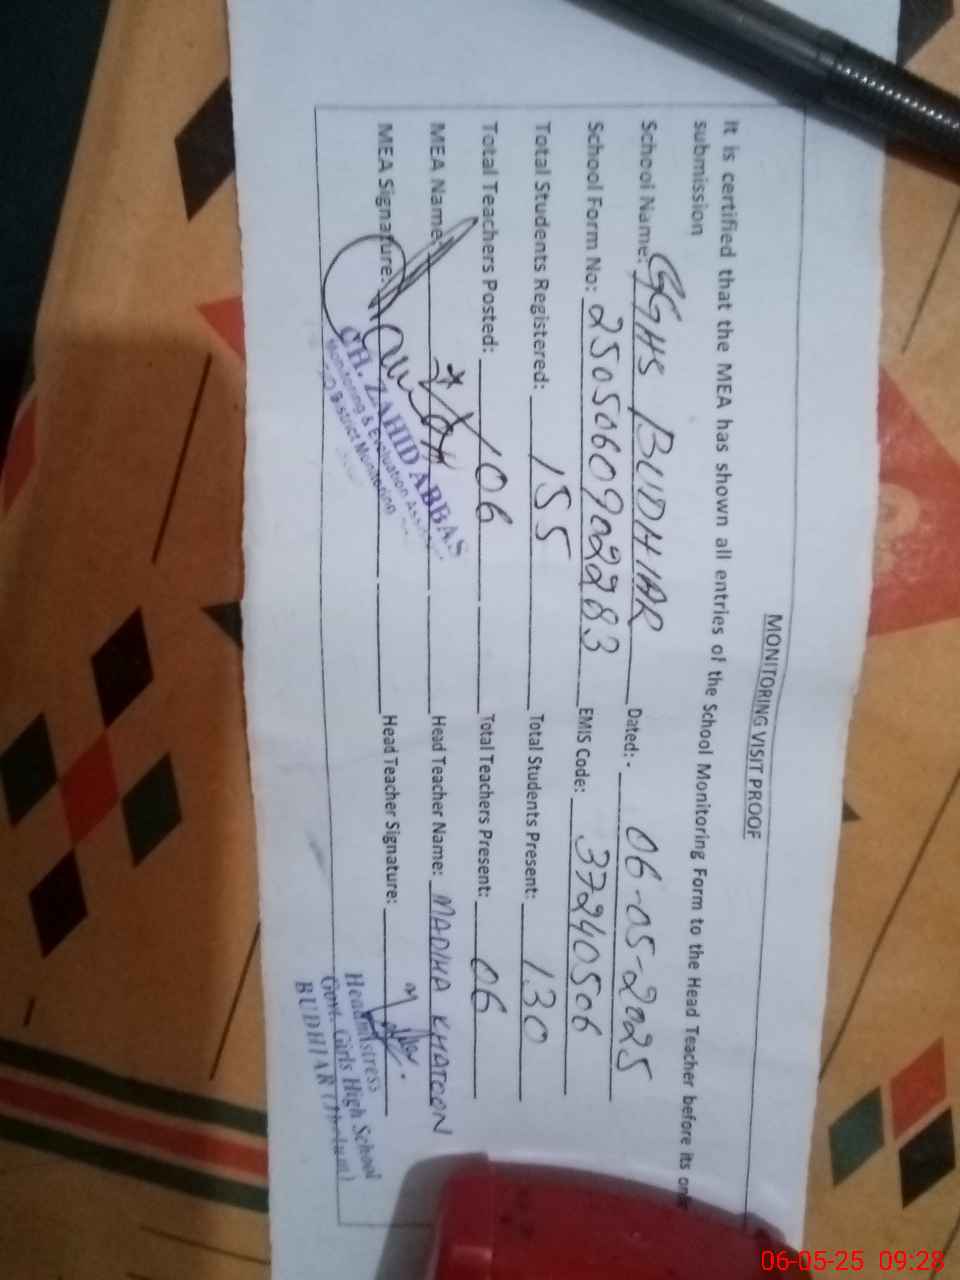 MONITORING VISIT PROOF
It is certified that the MEA has shown all entries of the School Monitoring Form to the Head Teacher before its
submission
School Name: GGHS BUDHIAR Dated:- 06-05-2025
School Form No: 2505060902283 EMIS Code: 37240506
Total Students Registered: 155 Total Students Present: 130
Total Teachers Posted: 06 Total Teachers Present: 06
MEA Name: Head Teacher Name: MADIHA KHATOON
MEA Signature: Head Teacher Signature:
CH. ZAHID ABBAS
Monitoring & Evaluation
District Monitoring
Headmistress
Govt. Girls High School
BUDHIAR (Jhelum)
06-05-25 09:28